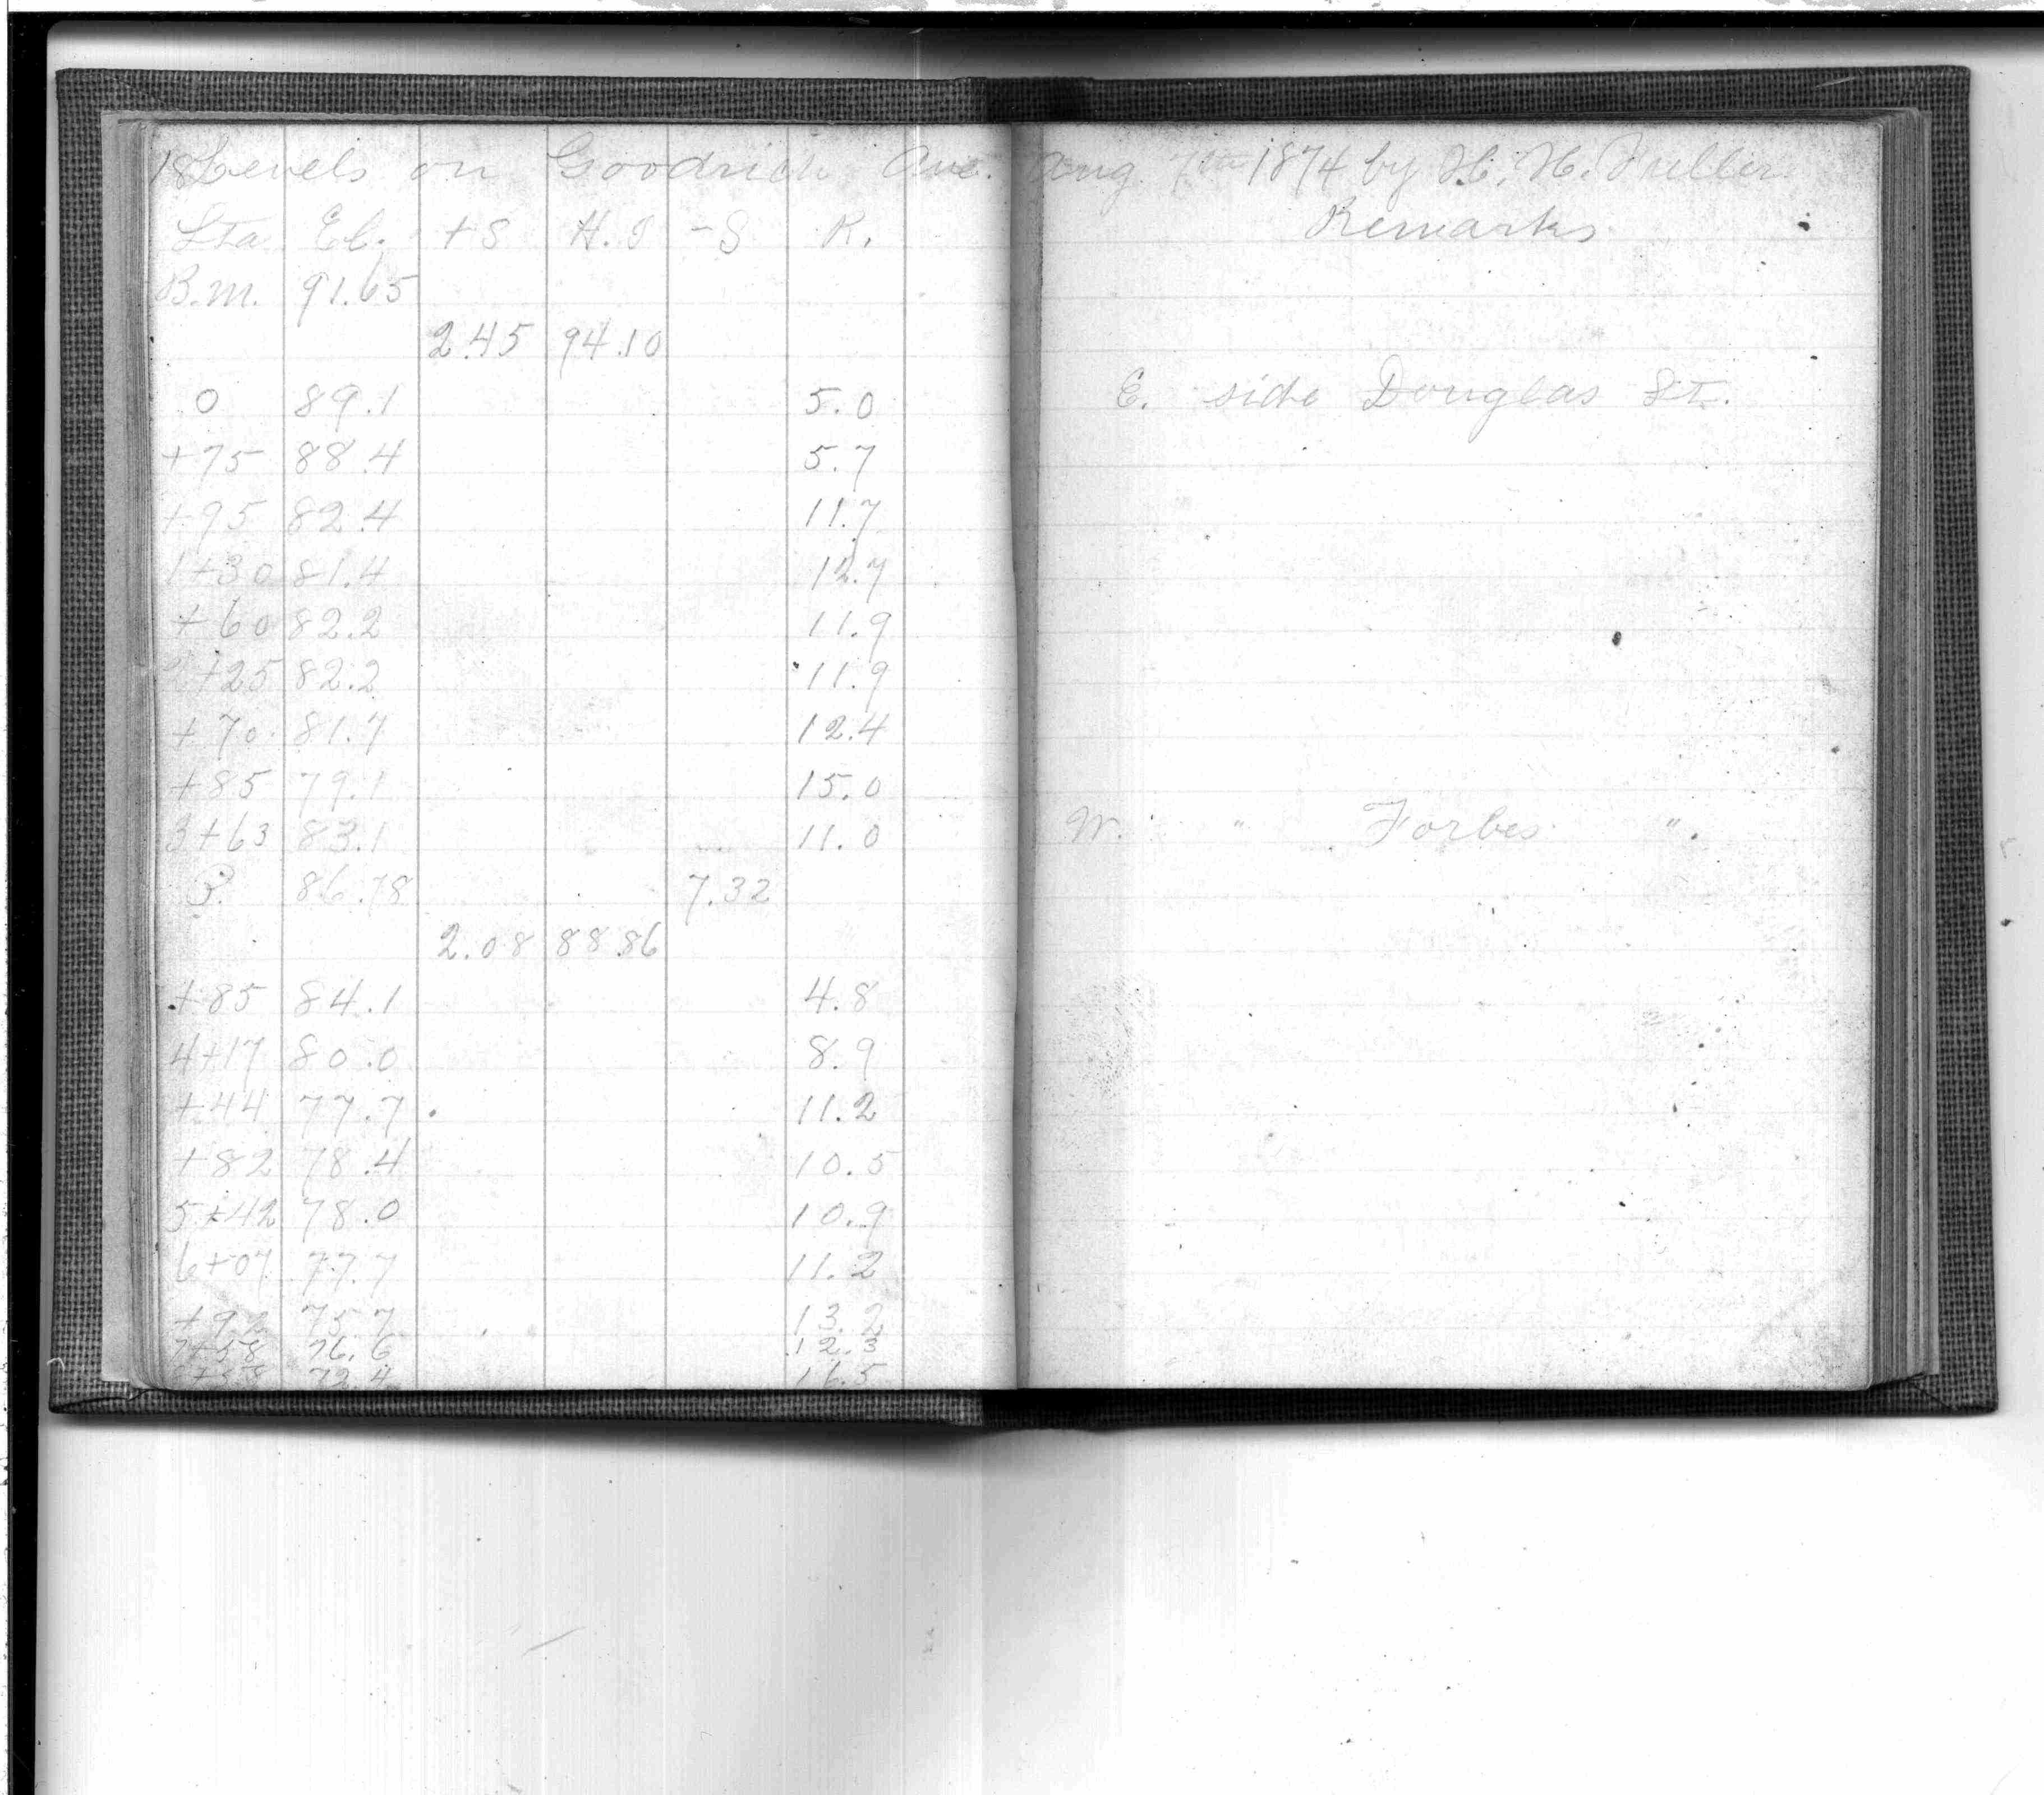 18 Levels on Goodrich Ave. Aug 7th 1874 by H. H. Fuller
Sta El. +S H.I -S R. Remarks
B.M. 91.65
2.45 94.10
0 89.1 5.0 E. side Douglas St.
+75 88.4 5.7
+95 82.4 11.7
1+30 81.4 12.7
+60 82.2 11.9
2+25 82.2 11.9
+70 81.7 12.4
+85 79.1 15.0
3+63 83.1 11.0 W. " Forbes ".
P. 86.78 7.32
2.08 88.86
+85 84.1 4.8
4+17 80.0 8.9
+44 77.7 11.2
+82 78.4 10.5
5+42 78.0 10.9
6+07 77.7 11.2
75.7 13.2
7+58 76.6 12.3
72.4 16.5